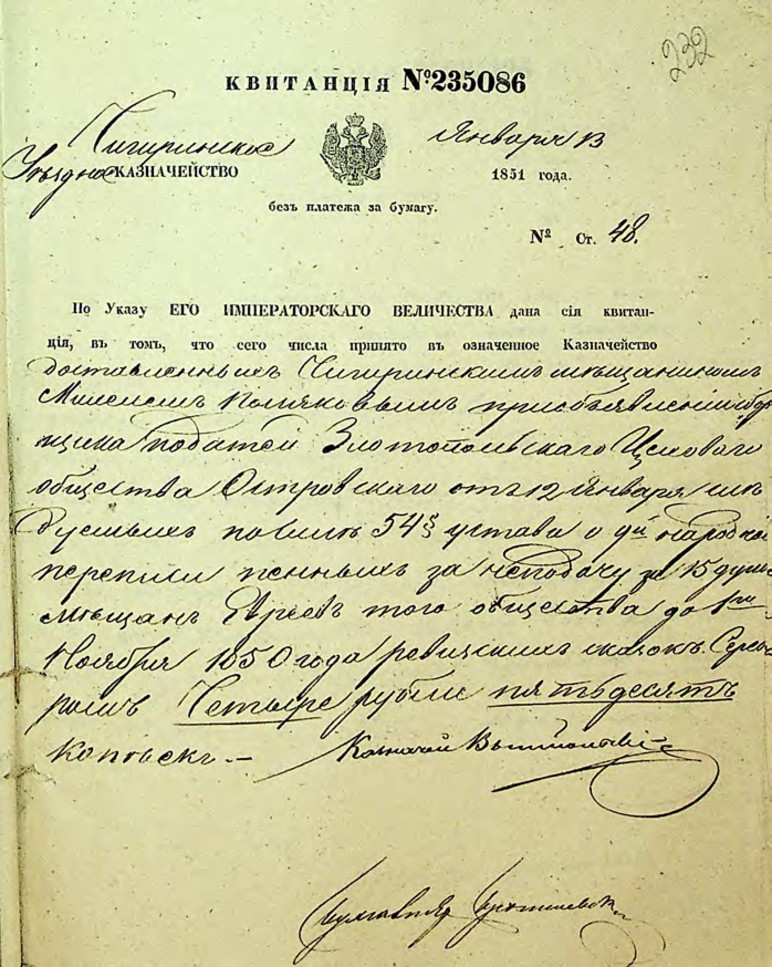 232
КВИТАНЦІЯ №235086
Чигиринское
Января 13
Уѣздное КАЗНАЧЕЙСТВО
1851 года.
безъ платежа за бумагу.
№ Ст. 48.
По Указу ЕГО ИМПЕРАТОРСКАГО ВЕЛИЧЕСТВА дана сія квитан-
ція, въ томъ, что сего числа принято въ означенное Казначейство
доставленныхъ Чигиринскимъ мѣщаниномъ
Поляковымъ при объявленіи сбор
щика податей Златопольскаго
общества Островскаго отъ 12 Января слѣ
дуемыхъ по силѣ 54 § устава о 9й народной
переписи пенныхъ за неподачу за 15 душъ
мѣщанъ Евреевъ того общества до 1го
Ноября 1850 года ревизскихъ сказокъ Сереб
ромъ Четыре рубли пятьдесятъ
копѣекъ. —
Казначей